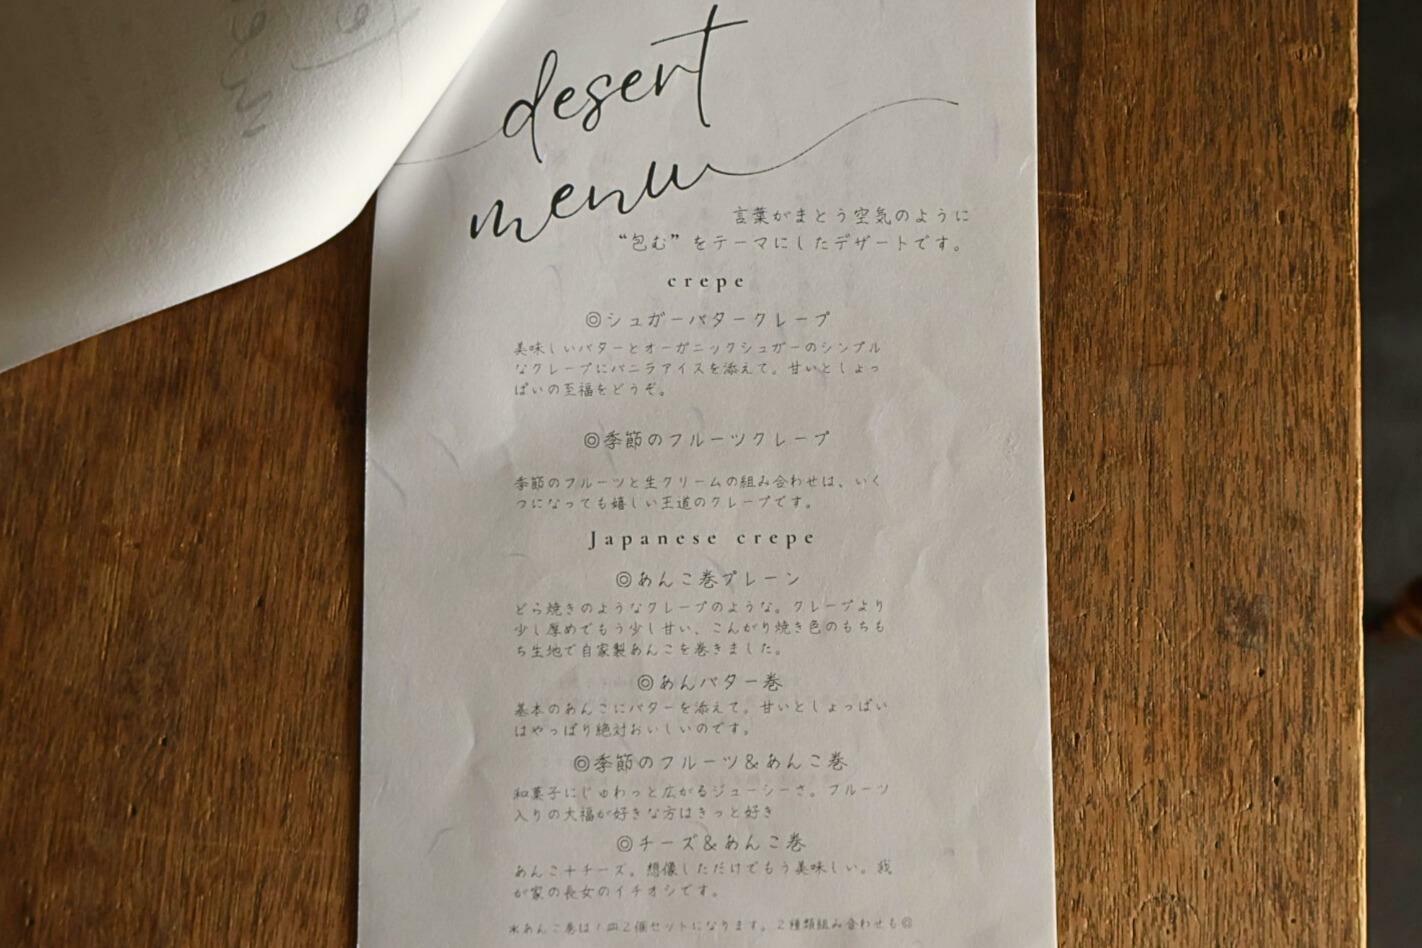 desert
menu
言葉がまとう空気のように
“包む”をテーマにしたデザートです。
crepe
◎シュガーバタークレープ
美味しいバターとオーガニックシュガーのシンプル
なクレープにバニラアイスを添えて。甘いとしょっ
ぱいの至福をどうぞ。
◎季節のフルーツクレープ
季節のフルーツと生クリームの組み合わせは、いく
つになっても嬉しい王道のクレープです。
Japanese crepe
◎あんこ巻プレーン
どら焼きのようなクレープのような。クレープより
少し厚めでもう少し甘い、こんがり焼き色のもちも
ち生地で自家製あんこを巻きました。
◎あんバター巻
基本のあんこにバターを添えて。甘いとしょっぱい
はやっぱり絶対おいしいのです。
◎季節のフルーツ&あんこ巻
和菓子にじゅわっと広がるジューシーさ。フルーツ
入りの大福が好きな方はきっと好き
◎チーズ&あんこ巻
あんこ+チーズ。想像しただけでもう美味しい。我
が家の長女のイチオシです。
※あんこ巻は1皿2個セットになります。2種類組み合わせも◎